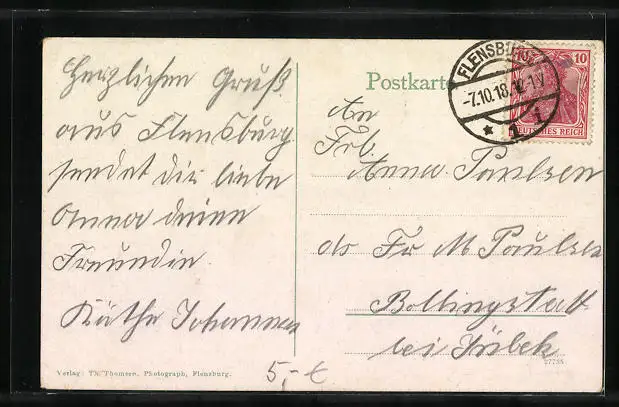 Herzlichen Gruß
aus Flensburg
sendet dir liebe
Anna deine
Freundin
Käthe Johannsen
Verlag: Th. Thomsen, Photograph, Flensburg.
5,- €
Postkarte
FLENSBURG
-7.10.18. 12-1 V
* 1 i
10 10
DEUTSCHES REICH
An
Frl.
Anna Paulsen
ds Fr M Paulsen
Bollingstedt
bei Jübek
27755